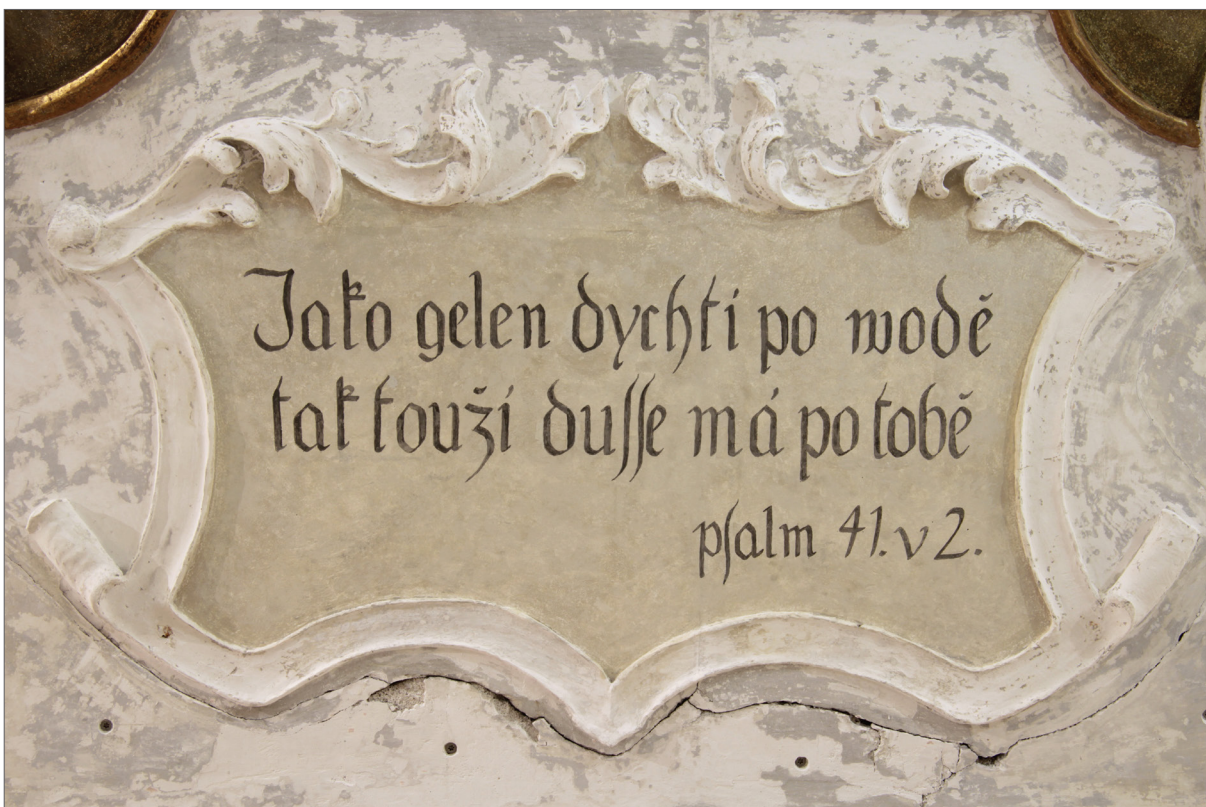 Jako gelen dychtí po wodě
tak touží dusse má po tobě
psalm 41. v 2.